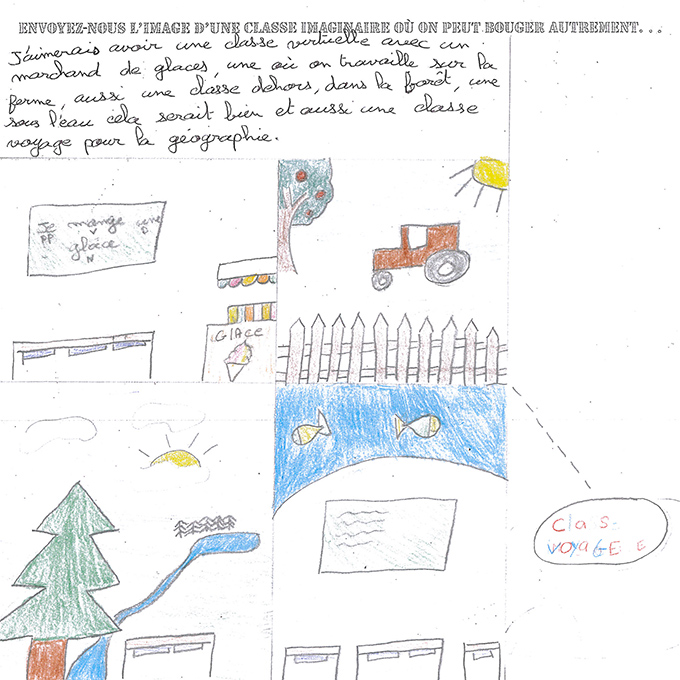 ENVOYEZ-NOUS L'IMAGE D'UNE CLASSE IMAGINAIRE OÙ ON PEUT BOUGER AUTREMENT...
J'aimerais avoir une classe virtuelle avec un
marchand de glaces, une où on travaille sur la
ferme, aussi une classe dehors, dans la forêt, une
sous l'eau cela serait bien et aussi une classe
voyage pour la géographie.
Je mange une
PP V D
glace
N
GLACE
Clas
VOYAGE E